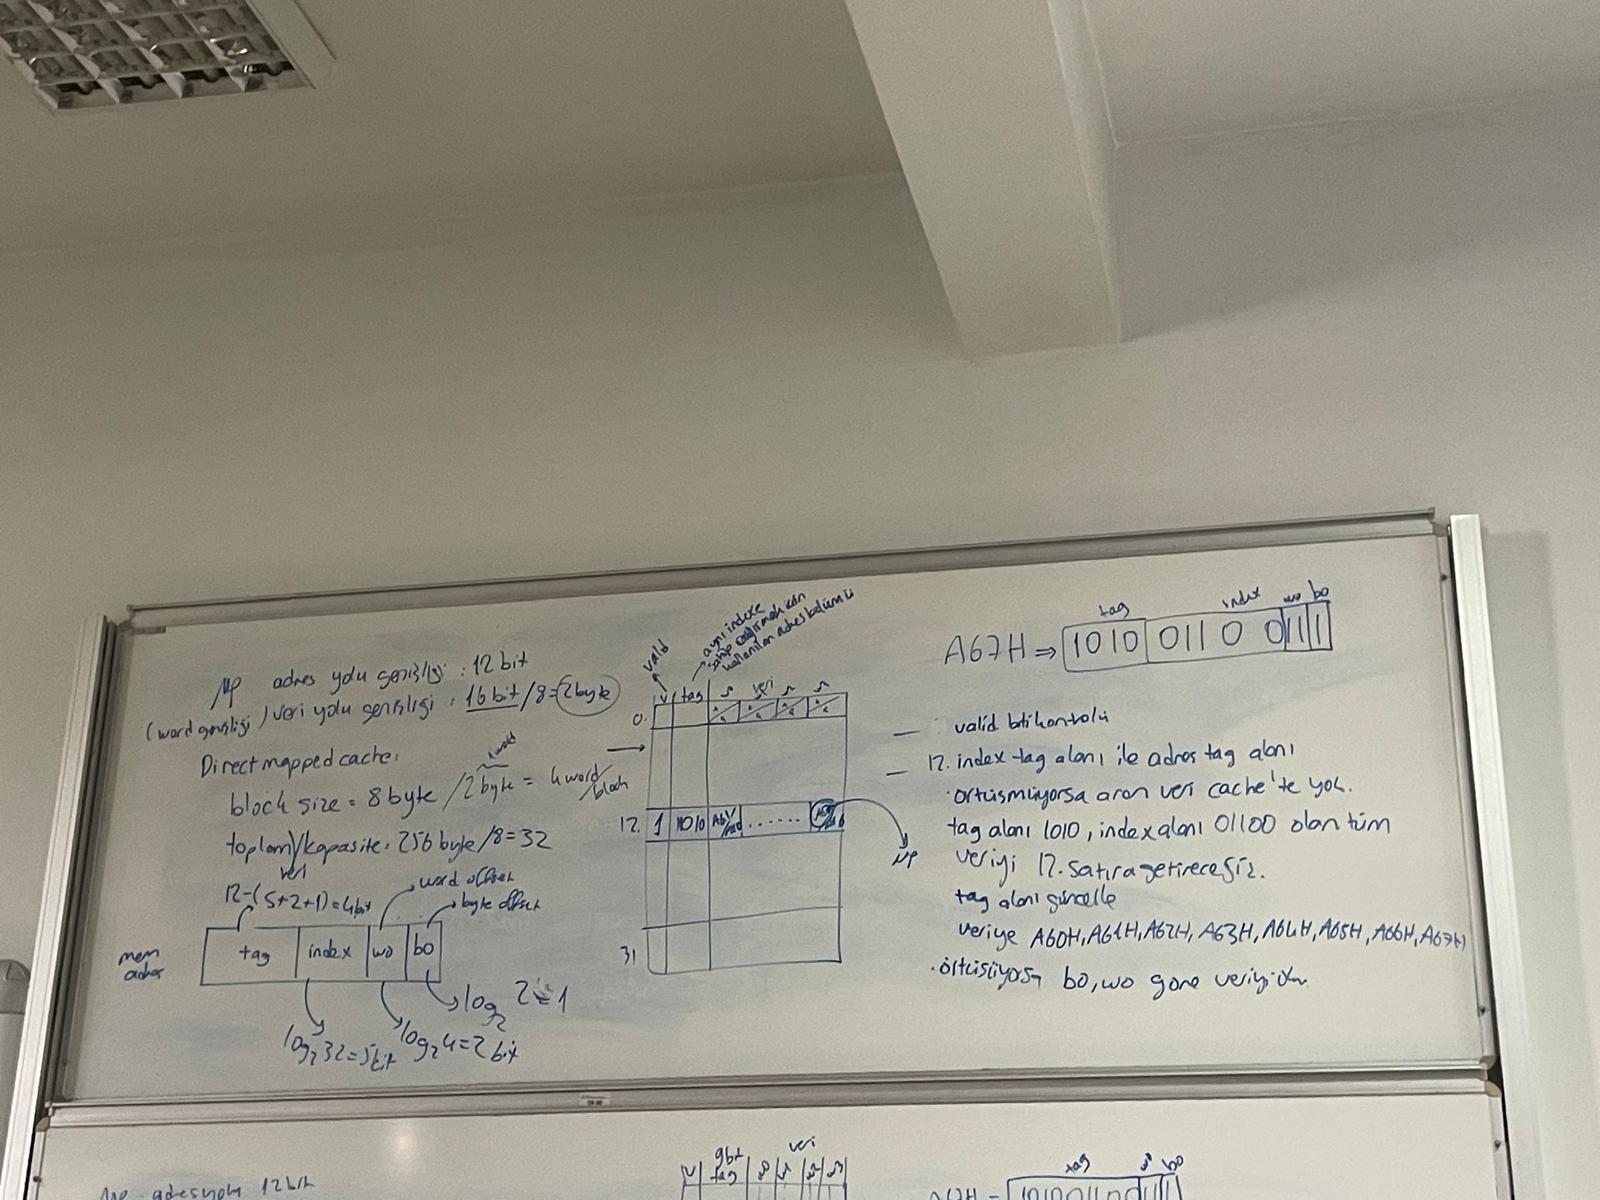 μp adres yolu genişliği : 12 bit
(word genişliği) veri yolu genişliği : 16 bit /8 = 2 byte
Direct mapped cache.
1 word
block size = 8 byte / 2 byte = 4 word/block
toplam kapasite : 256 byte /8 = 32
veri
12-(5+2+1)=4bit
word offset
byte offset
mem
adres
tag index wo bo
log₂ 2 = 1
log₂ 32 = 5bit
log₂ 4 = 2 bit
valid
aynı indexe
kullanılan adres bölümü
v tag veri
0.
12. 1 1010 ......
μp
31
tag index wo bo
A67H ⇒ 1010 01100 11 1
— valid biti kontrolü
— 12. index tag alanı ile adres tag alanı
· örtüşmüyorsa aranan veri cache'te yok.
tag alanı 1010, index alanı 01100 olan tüm
veriyi 12. satıra getireceğiz.
tag alanı güncelle
veriye A60H, A61H, A62H, A63H, A64H, A65H, A66H, A67H
· örtüşüyorsa bo, wo göre veriyi
adres yolu 12 bit
v tag veri
tag bo